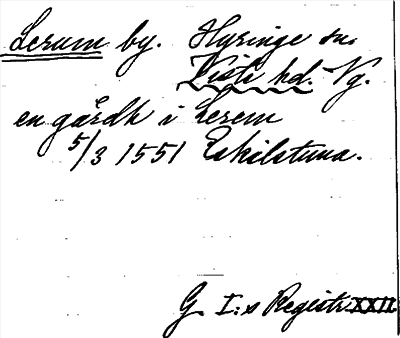 Lerum by. Hyringe sn.
Viste hd. Vg.
en gårdh i Lerem
5/3 1551 Eskilstuna.
G. I:s Registr. XXII